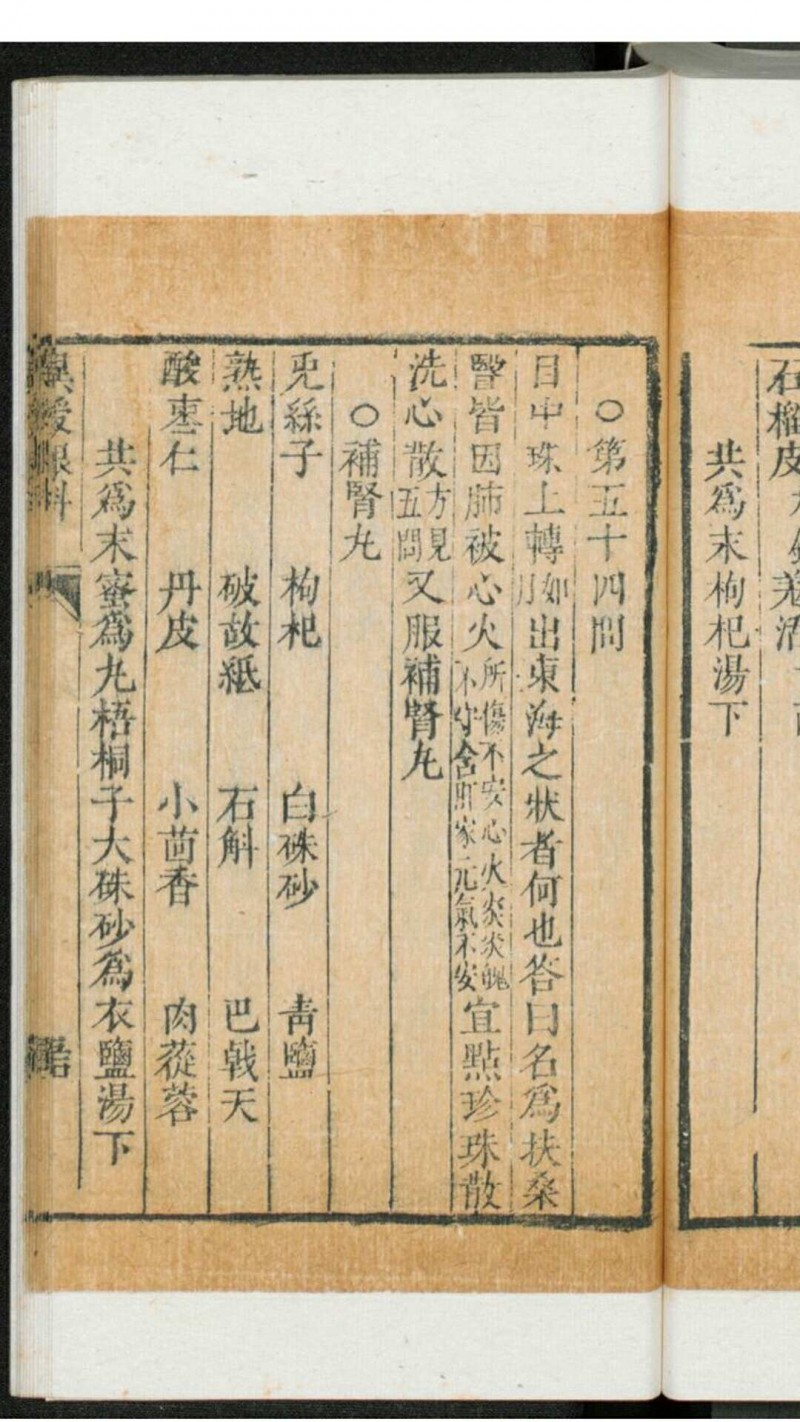 石榴皮
共爲末枸杞湯下
○第五十四問
日中珠上轉如日出東海之狀者何也答曰名爲扶桑
翳皆因肺被心火所傷不安心火炎炎魄不守舍肝家元氣不安宜點珍珠散
洗心散方見五問又服補腎丸
○補腎丸
兎絲子 枸杞 白硃砂 青鹽
熟地 破故紙 石斛 巴戟天
酸棗仁 丹皮 小茴香 肉蓯蓉
共爲末蜜爲丸梧桐子大硃砂爲衣鹽湯下
異授眼科